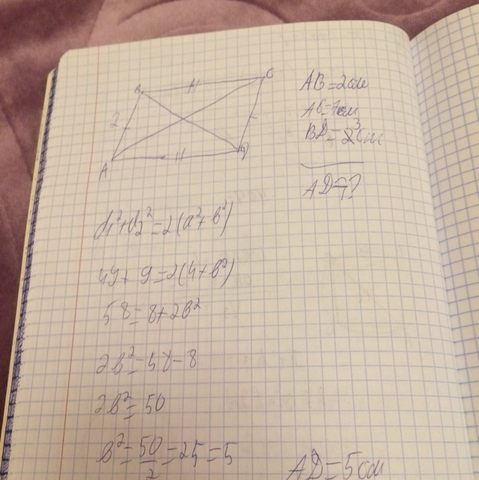 B C
2
A D
AB=2см
AC=7см
BD=3см
AD-?
d₁²+d₂²=2(a²+b²)
49+9=2(4+b²)
58=8+2b²
2b²=58-8
2b²=50
b²=50/2=25=5
AD=5см